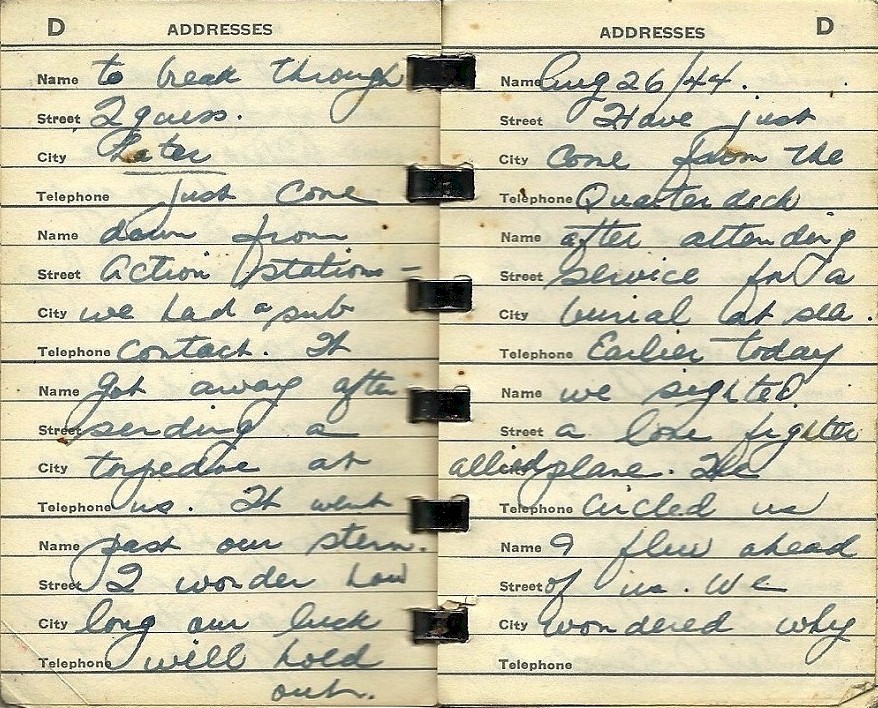 D ADDRESSES
Name to break through
Street I guess.
City Later
Telephone Just come
Name down from
Street action stations –
City we had a sub
Telephone contact. It
Name got away after
Street sending a
City torpedoe at
Telephone us. It went
Name past our stern.
Street I wonder how
City long our luck
Telephone will hold
out.
ADDRESSES D
Name Aug 26/44.
Street Have just
City come from the
Telephone Quarter deck
Name after attending
Street service for a
City burial at sea.
Telephone Earlier today
Name we sighted
Street a lone fighter
allied plane. He
Telephone circled us
Name & flew ahead
Street of us. We
City wondered why
Telephone